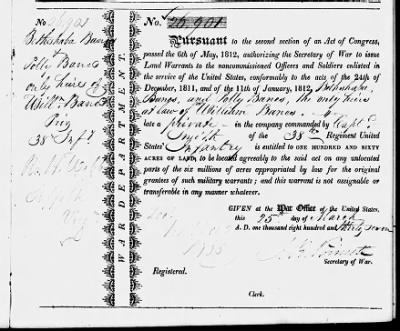 No. 26901
Bethsheba Banes
Polly Banes
only heirs of
Willm. Banes
Priv
38 Inft
WAR DEPARTMENT.
No. 26901
Pursuant to the second section of an Act of Congress,
passed the 6th of May, 1812, authorizing the Secretary of War to issue
Land Warrants to the noncommissioned Officers and Soldiers enlisted in
the service of the United States, conformably to the acts of the 24th of
December, 1811, and of the 11th of January, 1812, Bethsheba
Banes, and Polly Banes, the only heirs
at law of William Banes
late a private in the company commanded by Capt.
of the 38th Regiment United
States' Infantry is entitled to ONE HUNDRED AND SIXTY
ACRES OF LAND, to be located agreeably to the said act on any unlocated
parts of the six millions of acres appropriated by law for the original
grantees of such military warrants; and this warrant is not assignable or
transferable in any manner whatever.
GIVEN at the War Office of the United States,
this 25th day of March
A. D. one thousand eight hundred and thirty seven
Secretary of War.
Registered.
Clerk.